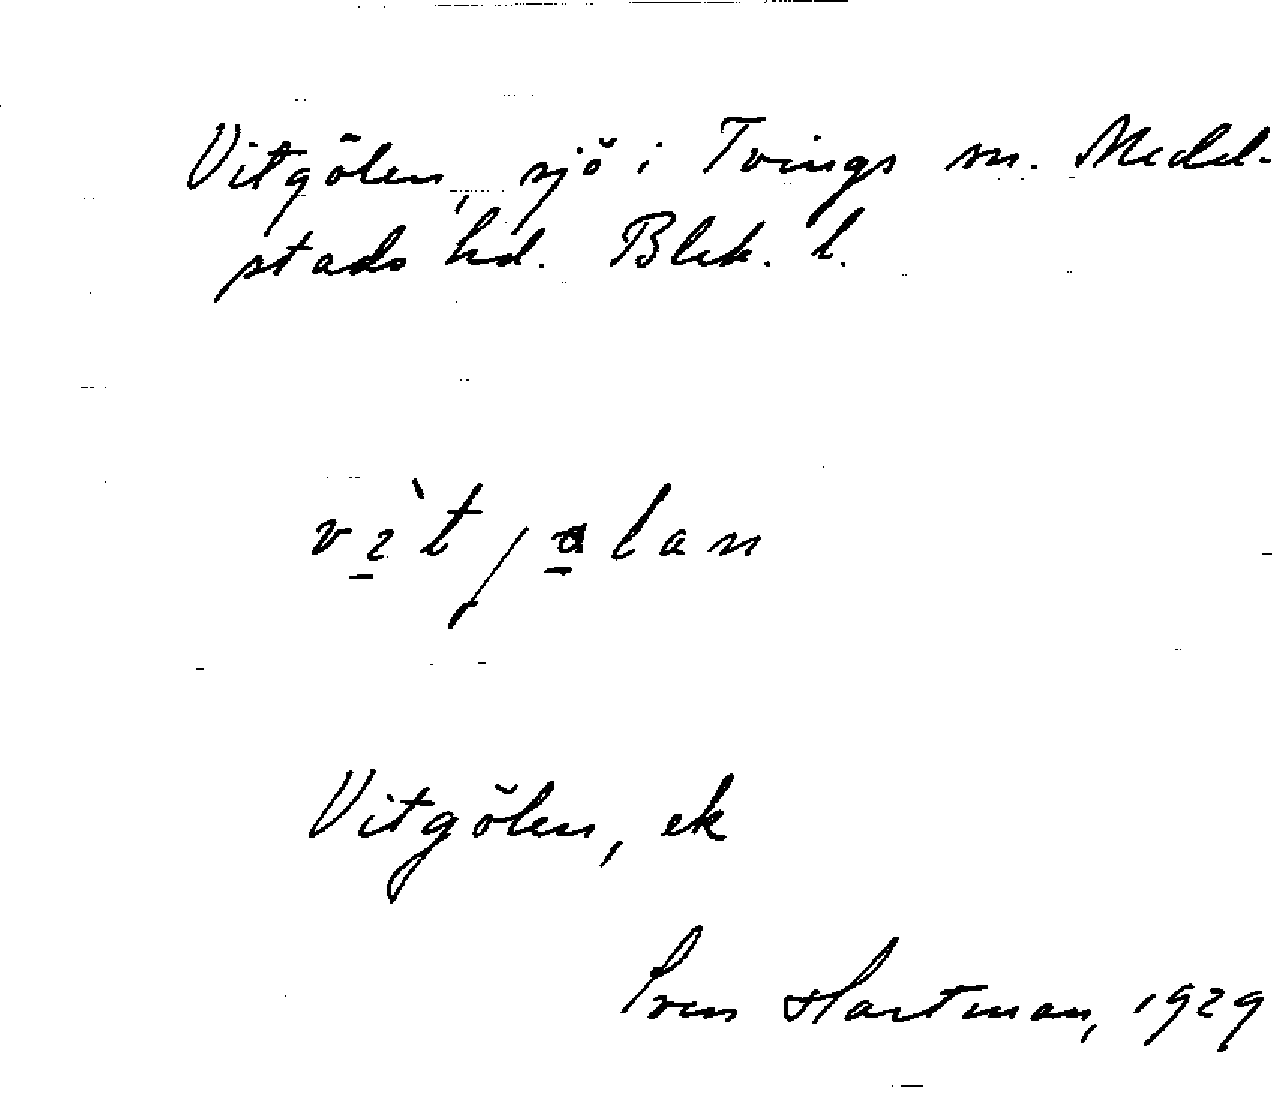 Vitgölen, sjö i Tvings sn. Medel-
stads hd. Blek. l.
Vitgölen, ek
Sven Hartman, 1929